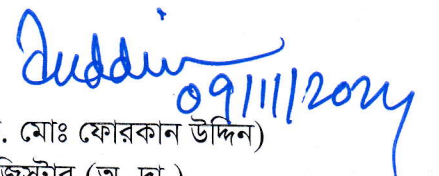 Auddin
09/11/2024
. মোঃ ফোরকান উদ্দিন)
জিস্ট্রার (অ. দা.)